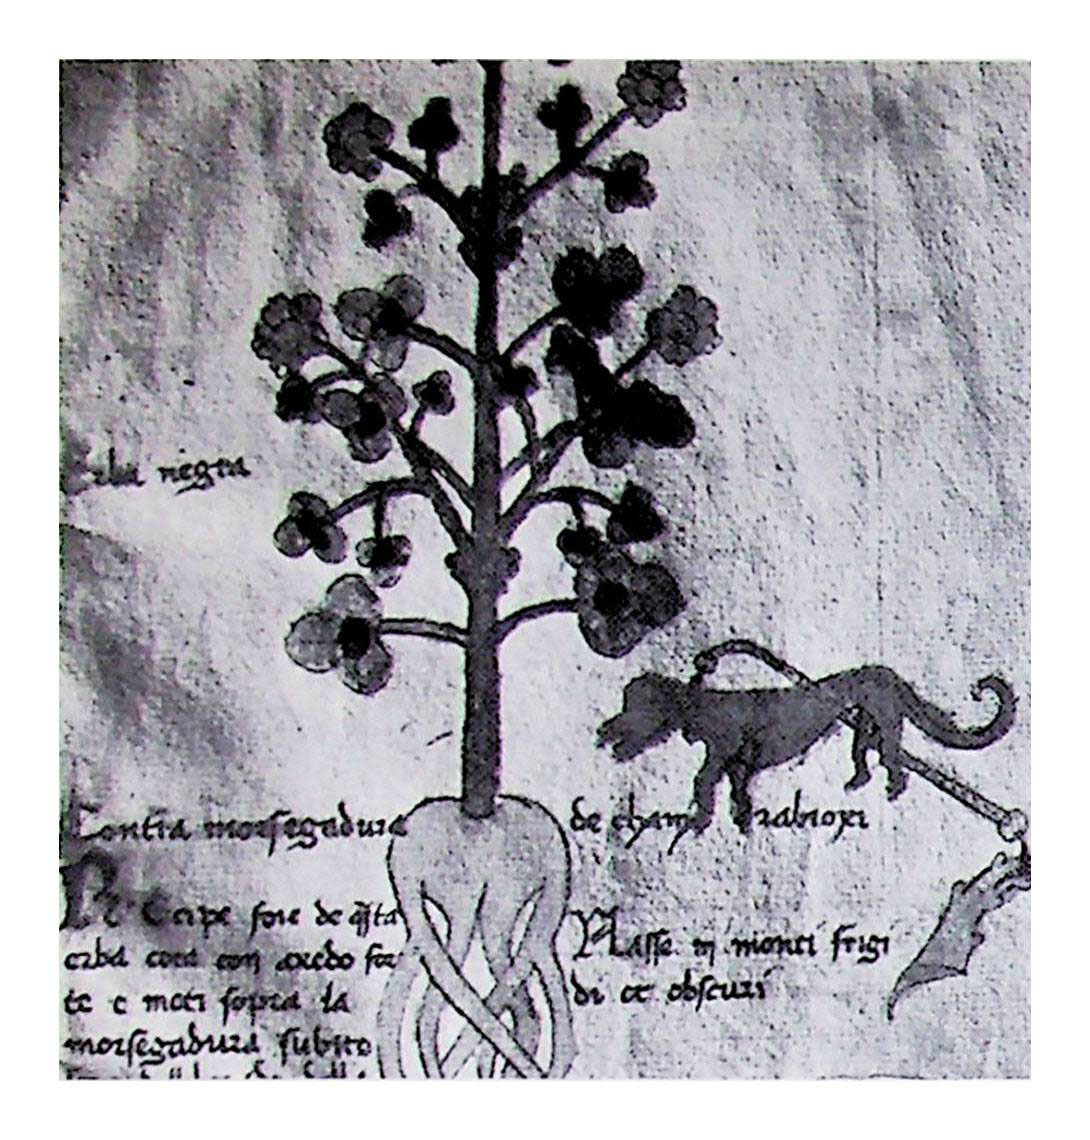 Erba negra
Contra morsegadura de cham rabioxi
Recipe foie de q̃sta
erba cota con axedo for
te e meti sopra la
morsegadura subito
Nasse in monti frigi
di et obscuri